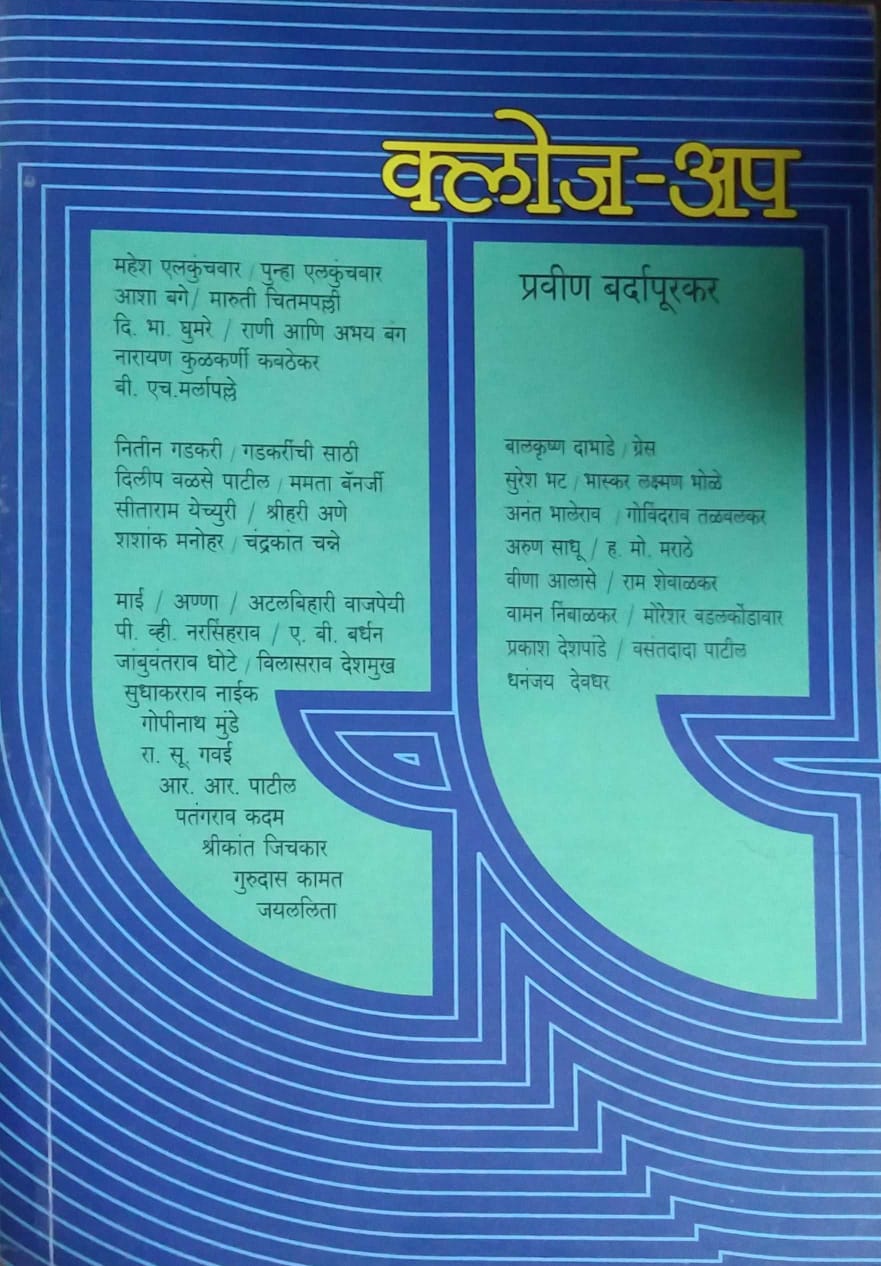 क्लोज-अप
महेश एलकुंचवार / पुन्हा एलकुंचवार
आशा बगे / मारुती चितमपल्ली
दि. भा. घुमरे / राणी आणि अभय बंग
नारायण कुळकर्णी कवठेकर
बी. एच.मर्लापल्ले
नितीन गडकरी / गडकरींची साठी
दिलीप वळसे पाटील / ममता बॅनर्जी
सीताराम येच्युरी / श्रीहरी अणे
शशांक मनोहर / चंद्रकांत चन्ने
माई / अण्णा / अटलबिहारी वाजपेयी
पी. व्ही. नरसिंहराव / ए. बी. बर्धन
जांबुवंतराव धोटे / विलासराव देशमुख
सुधाकरराव नाईक
गोपीनाथ मुंडे
रा. सू. गवई
आर. आर. पाटील
पतंगराव कदम
श्रीकांत जिचकार
गुरुदास कामत
जयललिता
प्रवीण बर्दापूरकर
बालकृष्ण दाभाडे / ग्रेस
सुरेश भट / भास्कर लक्ष्मण भोळे
अनंत भालेराव / गोविंदराव तळवलकर
अरुण साधू / ह. मो. मराठे
वीणा आलासे / राम शेवाळकर
वामन निंबाळकर / मोरेशर वडलकोंडावार
प्रकाश देशपांडे / वसंतदादा पाटील
धनंजय देवधर